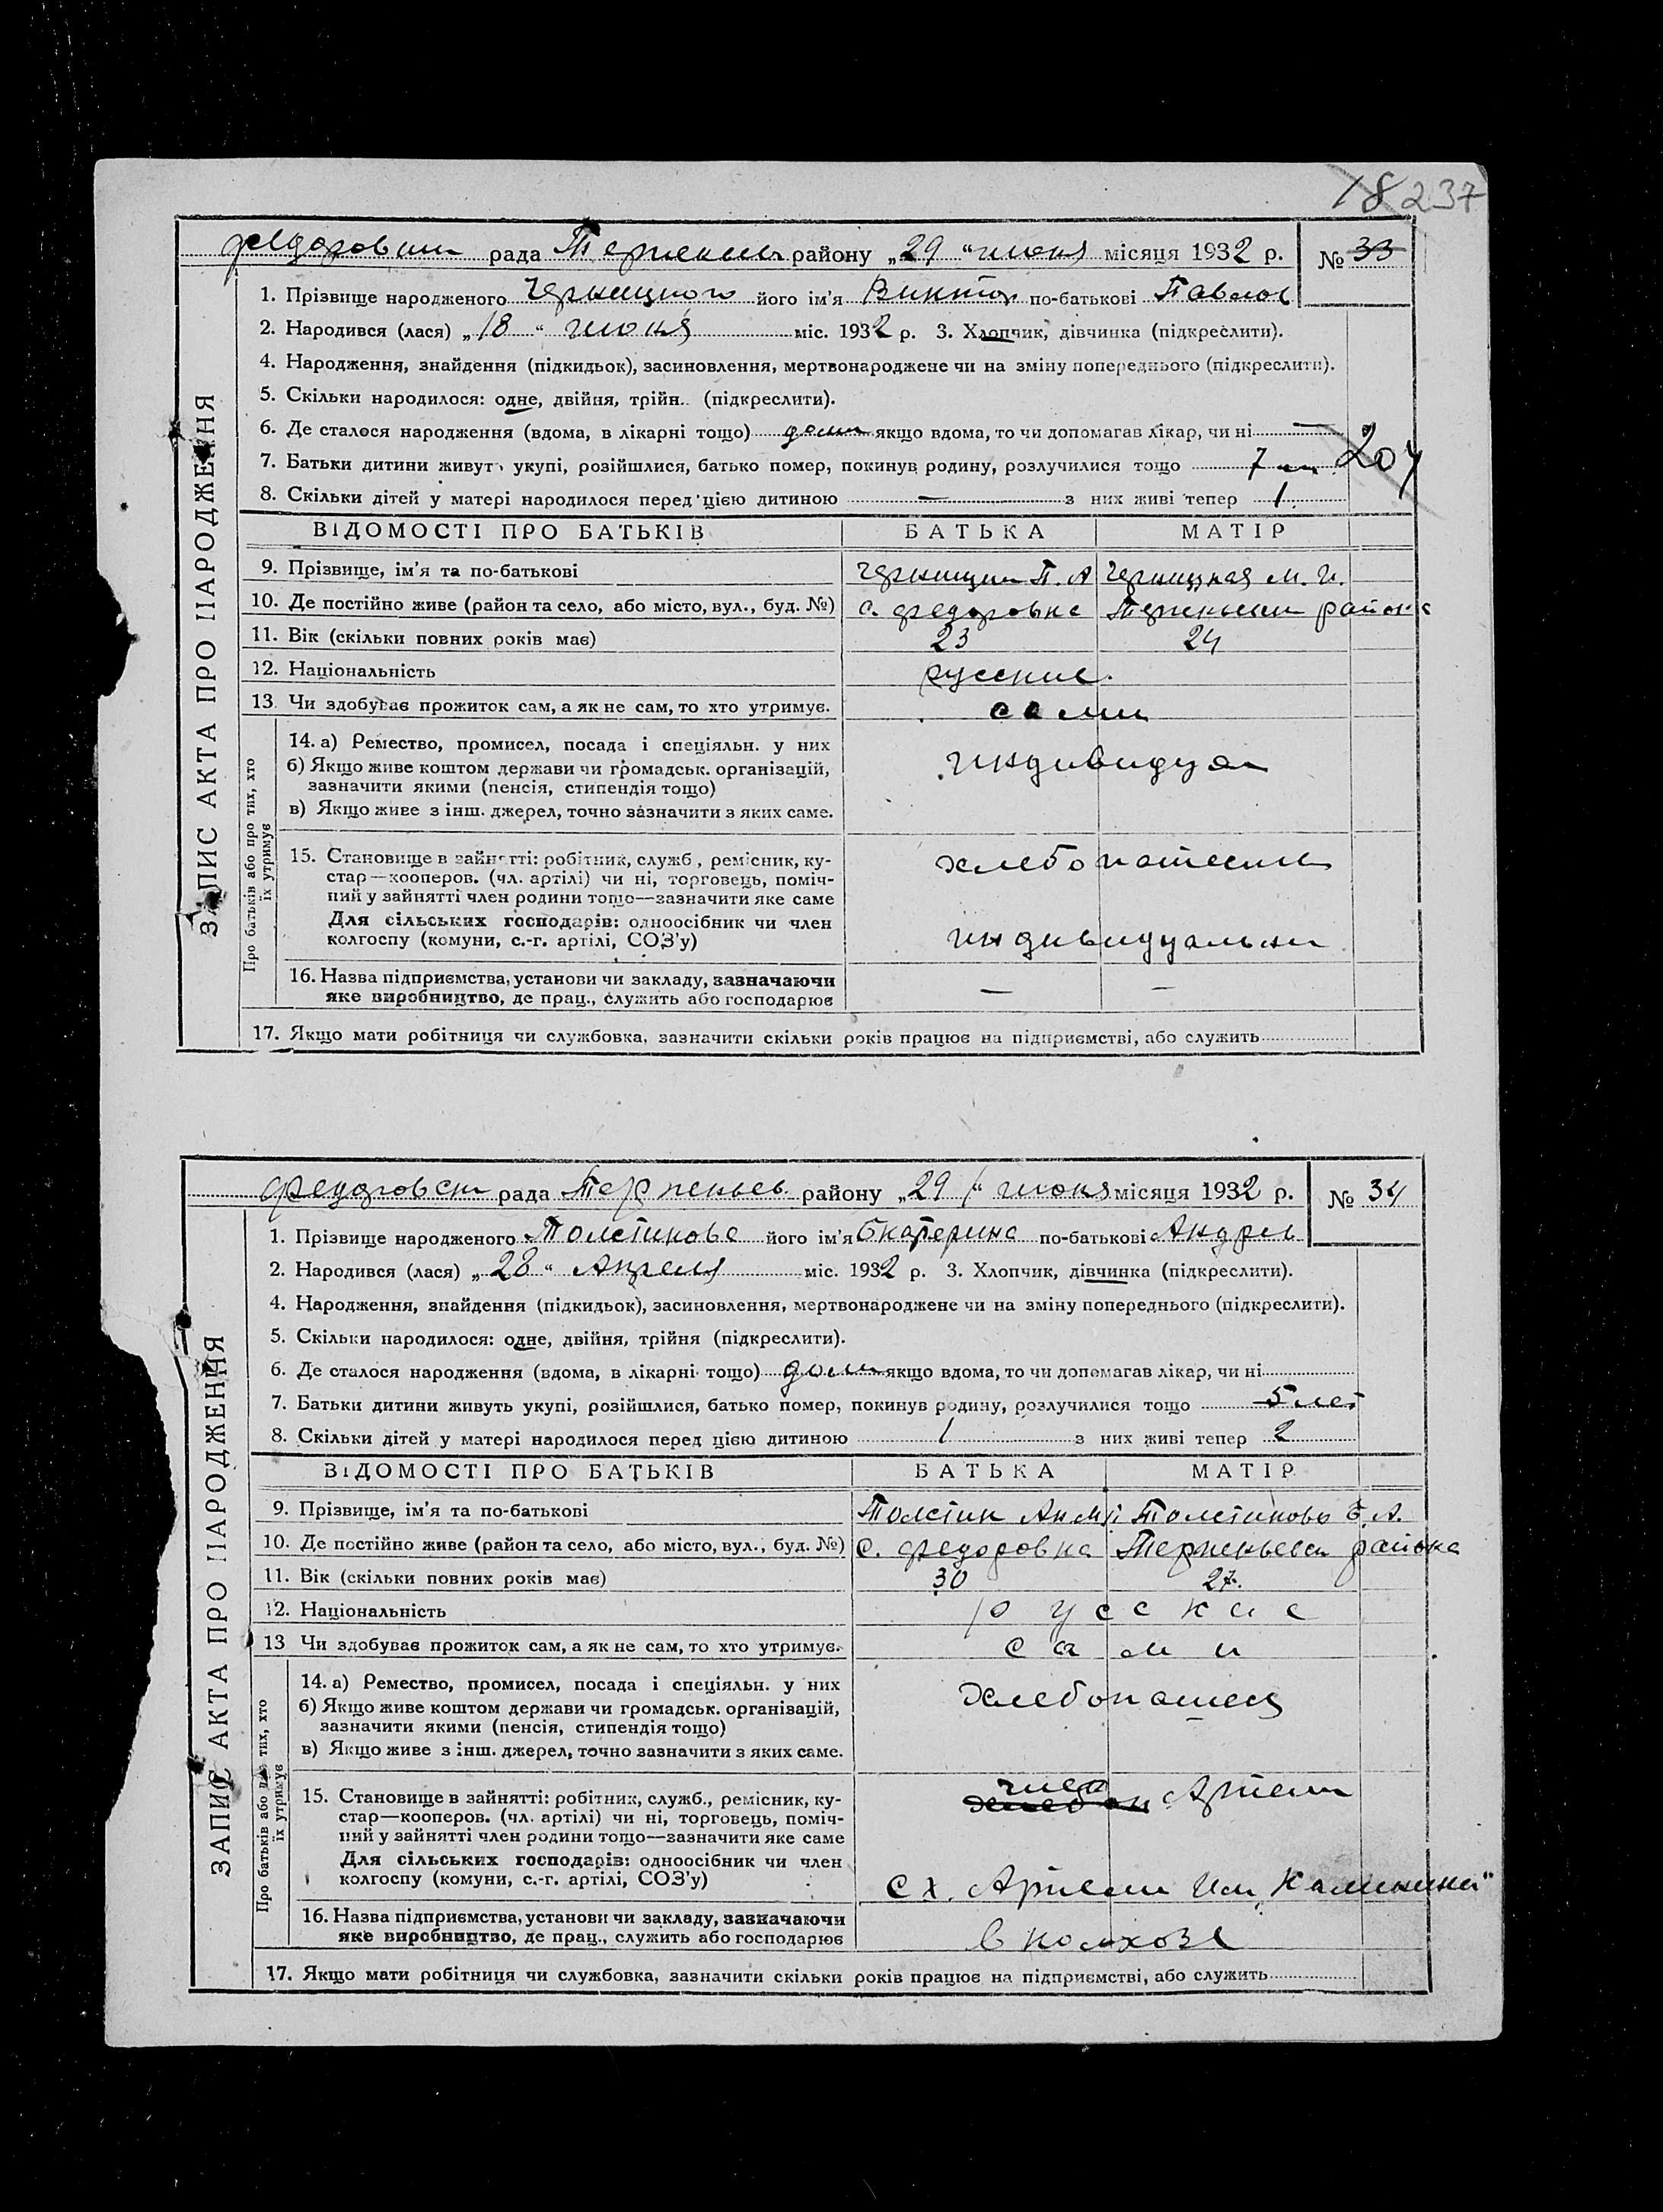 18 237
Федоровск рада Терпеньев району „29 “ июня місяця 1932 р. № 33
1. Прізвище народженого Черницкого його ім'я Виктор по-батькові Павлов
2. Народився (лася) „18 “ июня міс. 1932 р. 3. Хлопчик, дівчинка (підкреслити).
4. Народження, знайдення (підкидьок), засиновлення, мертвонароджене чи на зміну попереднього (підкреслити).
5. Скільки народилося: одне, двійня, трійн.. (підкреслити).
6. Де сталося народження (вдома, в лікарні тощо) дома якщо вдома, то чи допомагав лікар, чи ні —
7. Батьки дитини живут укупі, розійшлися, батько помер, покинув родину, розлучилися тощо 7
207
8. Скільки дітей у матері народилося перед цією дитиною — з них живі тепер 1.
ВІДОМОСТІ ПРО БАТЬКІВ БАТЬКА МАТІР
9. Прізвище, ім'я та по-батькові Черницки П. А Черницкая М. И.
10. Де постійно живе (район та село, або місто, вул., буд. №) с. Федоровка Терпеньевск района
11. Вік (скільки повних років має) 23 24
12. Національність русские.
13. Чи здобуває прожиток сам, а як не сам, то хто утримує. сами
14. а) Ремество, промисел, посада і спеціяльн. у них
б) Якщо живе коштом держави чи громадськ. організацій,
зазначити якими (пенсія, стипендія тощо)
в) Якщо живе з інш. джерел, точно зазначити з яких саме.
индивидуал
15. Становище в зайнятті: робітник, служб., ремісник, ку-
стар—кооперов. (чл. артілі) чи ні, торговець, поміч-
ний у зайнятті член родини тощо—зазначити яке саме
хлебопашец
Для сільських господарів: одноосібник чи член
колгоспу (комуни, с.-г. артілі, СОЗ'у)
индивидуальн
16. Назва підприємства, установи чи закладу, зазначаючи
яке виробництво, де прац., служить або господарює — —
17. Якщо мати робітниця чи службовка, зазначити скільки років працює на підприємстві, або служить
ЗАПИС АКТА ПРО НАРОДЖЕННЯ
Про батьків або про тих, хто
їх утримує
Федоровск рада Терпеньев району „29 “ июня місяця 1932 р. № 34
1. Прізвище народженого Толстикова його ім'я Екатерина по-батькові Андрев
2. Народився (лася) „28 “ Апреля міс. 1932 р. 3. Хлопчик, дівчинка (підкреслити).
4. Народження, знайдення (підкидьок), засиновлення, мертвонароджене чи на зміну попереднього (підкреслити).
5. Скільки народилося: одне, двійня, трійня (підкреслити).
6. Де сталося народження (вдома, в лікарні тощо) дома якщо вдома, то чи допомагав лікар, чи ні
7. Батьки дитини живуть укупі, розійшлися, батько помер, покинув родину, розлучилися тощо 5 лет
8. Скільки дітей у матері народилося перед цією дитиною 1 з них живі тепер 2
ВІДОМОСТІ ПРО БАТЬКІВ БАТЬКА МАТІР
9. Прізвище, ім'я та по-батькові Толстик Толстикова Е. А.
10. Де постійно живе (район та село, або місто, вул., буд. №) с. Федоровка Терпеньевск района
11. Вік (скільки повних років має) 30 27.
12. Національність русские
13 Чи здобуває прожиток сам, а як не сам, то хто утримує. сами
14. а) Ремество, промисел, посада і спеціяльн. у них
б) Якщо живе коштом держави чи громадськ. організацій,
зазначити якими (пенсія, стипендія тощо)
в) Якщо живе з інш. джерел, точно зазначити з яких саме.
хлебопашец
15. Становище в зайнятті: робітник, служб., ремісник, ку-
стар—кооперов. (чл. артілі) чи ні, торговець, поміч-
ний у зайнятті член родини тощо—зазначити яке саме
член Артели
Для сільських господарів: одноосібник чи член
колгоспу (комуни, с.-г. артілі, СОЗ'у)
С х. Артели Им „Калинина"
16. Назва підприємства, установи чи закладу, зазначаючи
яке виробництво, де прац., служить або господарює в колхозе
17. Якщо мати робітниця чи службовка, зазначити скільки років працює на підприємстві, або служить
ЗАПИС АКТА ПРО НАРОДЖЕННЯ
Про батьків або про тих, хто
їх утримує